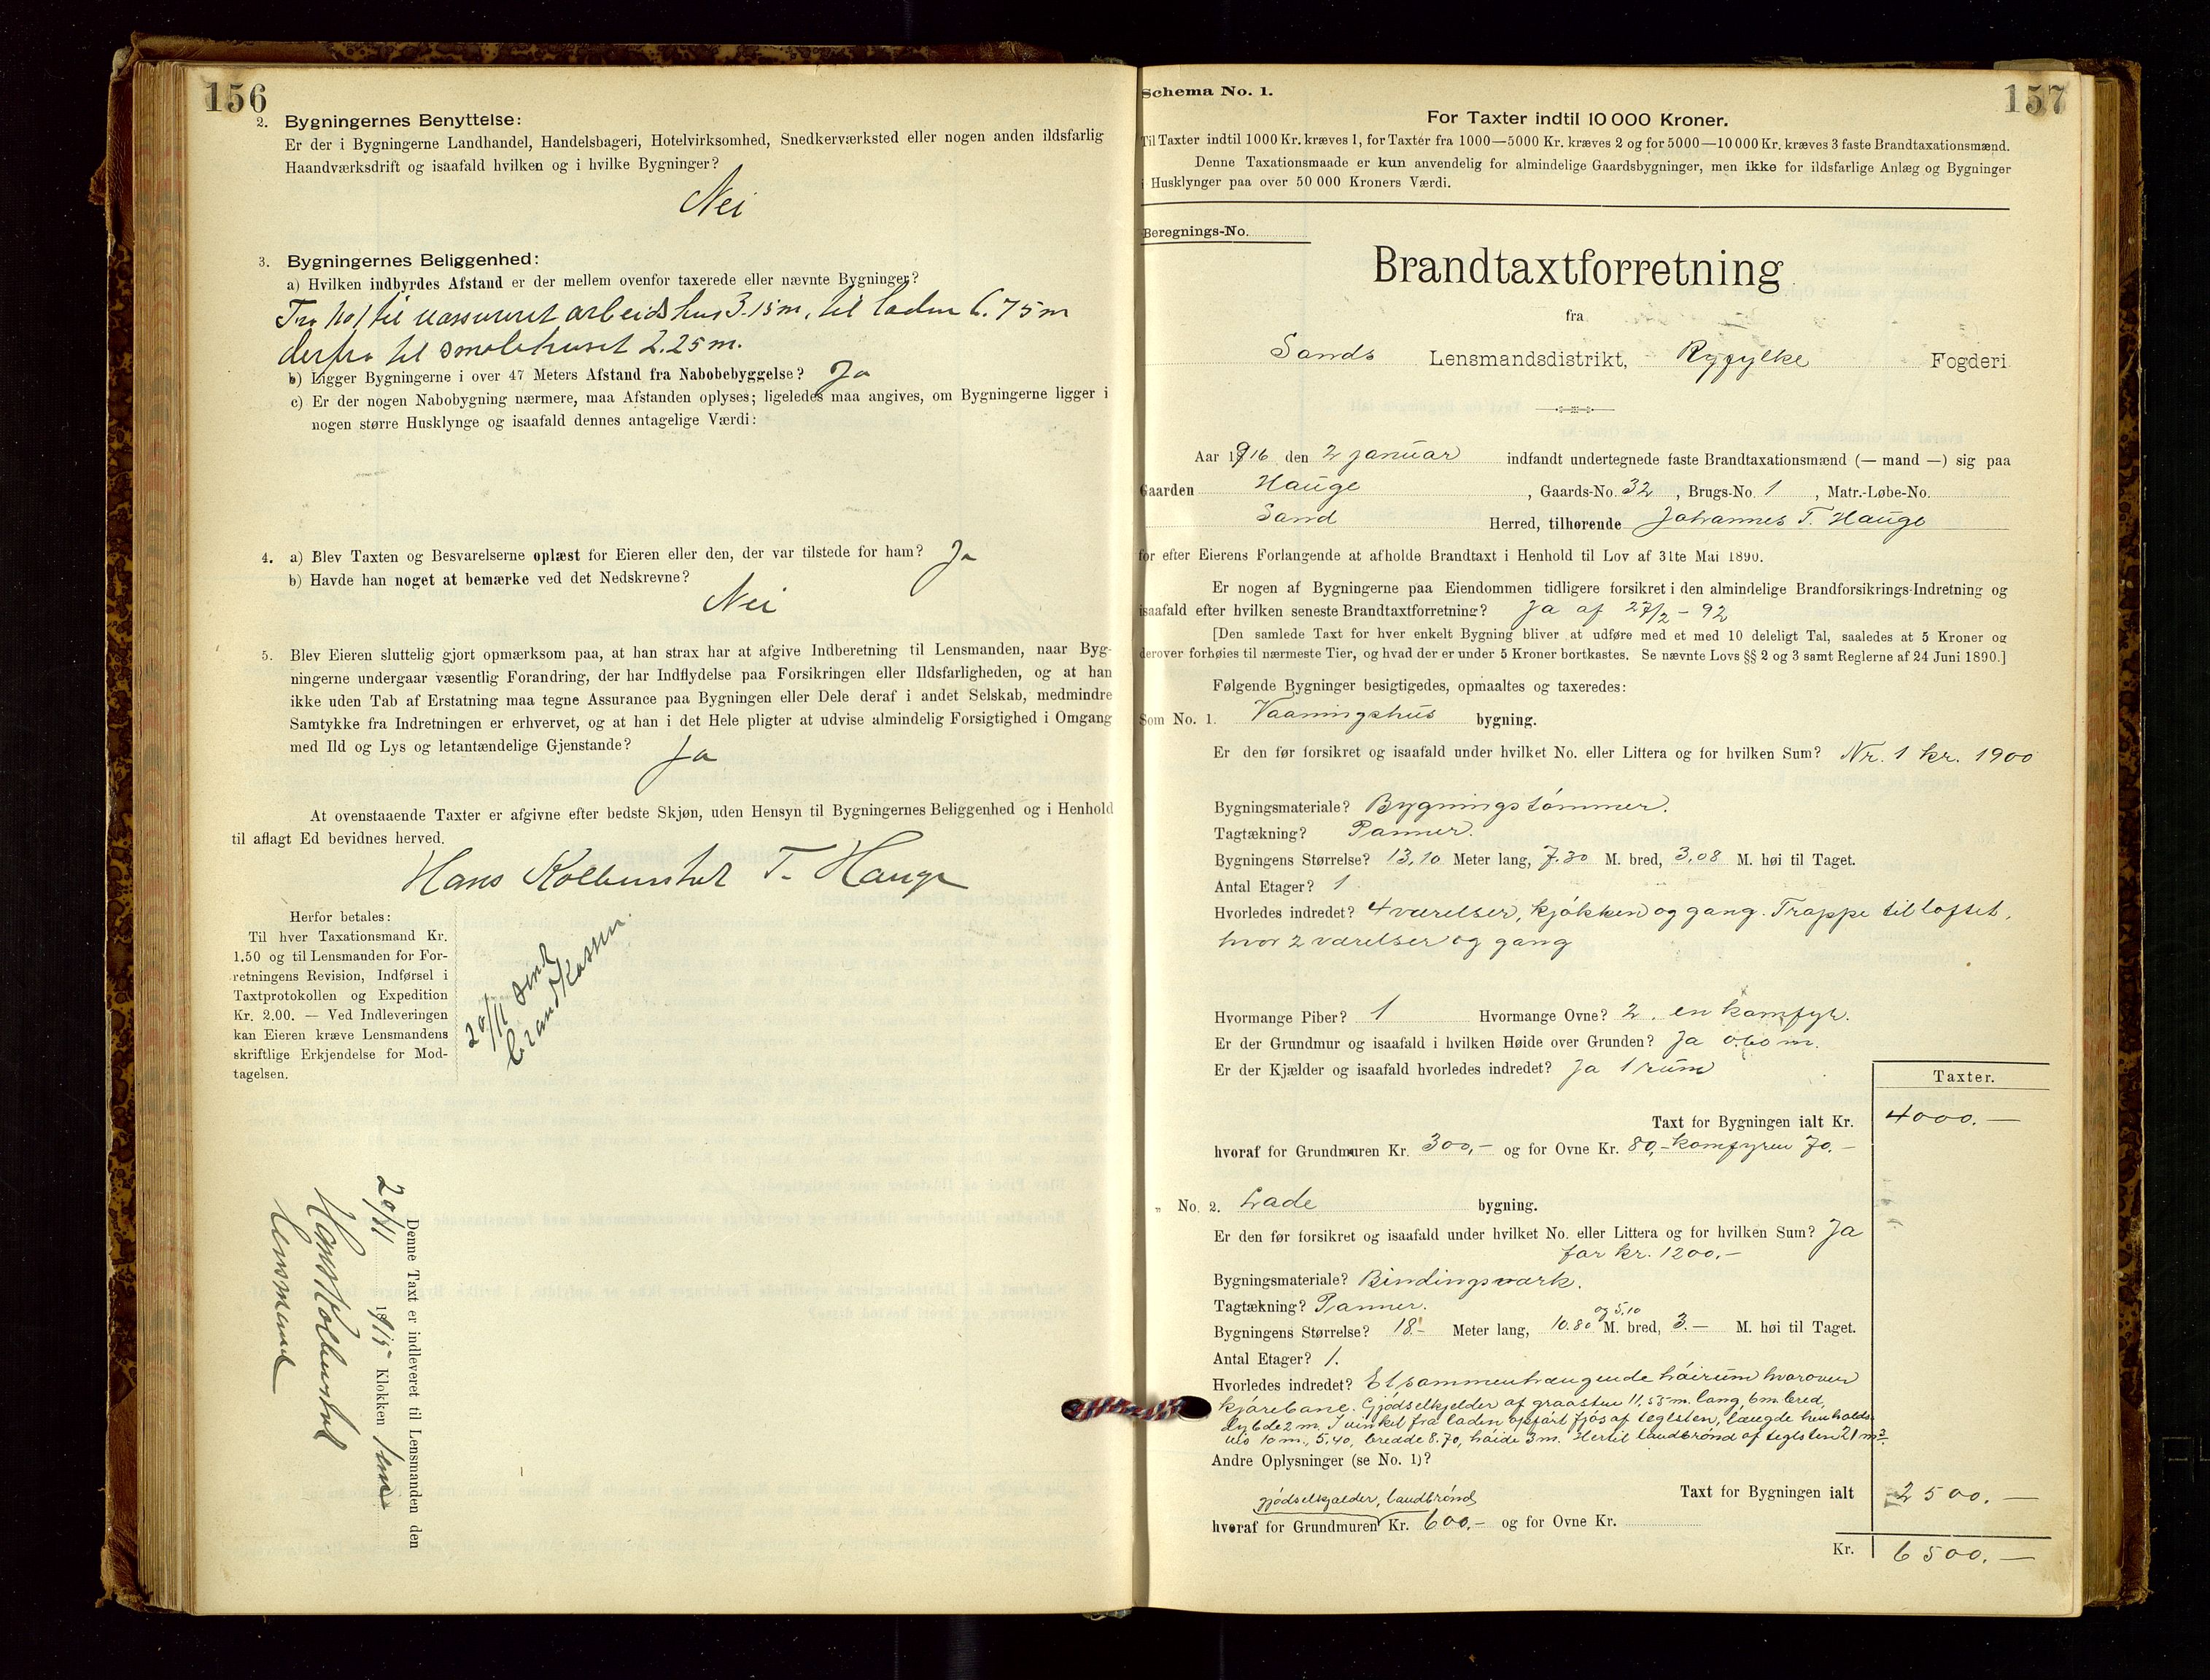 156
2. Bygningernes Benyttelse:
Er der i Bygningerne Landhandel, Handelsbageri, Hotelvirksomhed, Snedkerværksted eller nogen anden ildsfarlig
Haandværksdrift og isaafald hvilken og i hvilke Bygninger?
Nei
3. Bygningernes Beliggenhed:
a) Hvilken indbyrdes Afstand er der mellem ovenfor taxerede eller nævnte Bygninger?
Fra No 1 til uassureret arbeidshus 3.15 m, til laden 6.75 m
derfra til smalehuset 2.25 m.
b) Ligger Bygningerne i over 47 Meters Afstand fra Nabobebyggelse? Ja
c) Er der nogen Nabobygning nærmere, maa Afstanden oplyses; ligeledes maa angives, om Bygningerne ligger i
nogen større Husklynge og isaafald dennes antagelige Værdi:
4. a) Blev Taxten og Besvarelserne oplæst for Eieren eller den, der var tilstede for ham? Ja
b) Havde han noget at bemærke ved det Nedskrevne?
Nei
5. Blev Eieren sluttelig gjort opmærksom paa, at han strax har at afgive Indberetning til Lensmanden, naar Byg-
ningerne undergaar væsentlig Forandring, der har Indflydelse paa Forsikringen eller Ildsfarligheden, og at han
ikke uden Tab af Erstatning maa tegne Assurance paa Bygningen eller Dele deraf i andet Selskab, medmindre
Samtykke fra Indretningen er erhvervet, og at han i det Hele pligter at udvise almindelig Forsigtighed i Omgang
med Ild og Lys og letantændelige Gjenstande? Ja
At ovenstaaende Taxter er afgivne efter bedste Skjøn, uden Hensyn til Bygningernes Beliggenhed og i Henhold
til aflagt Ed bevidnes herved.
Hans Kolbenstvedt T. Hauge
Herfor betales:
Til hver Taxationsmand Kr.
1.50 og til Lensmanden for For-
retningens Revision, Indførsel i
Taxtprotokollen og Expedition
Kr. 2.00. — Ved Indleveringen
kan Eieren kræve Lensmandens
skriftlige Erkjendelse for Mod-
tagelsen.
20/11 sendt
brandkassen.
Denne Taxt er indleveret til Lensmanden den
20/11 1915 Klokken
Lensmand
157
Schema No. 1.
For Taxter indtil 10 000 Kroner.
Til Taxter indtil 1000 Kr. kræves 1, for Taxter fra 1000—5000 Kr. kræves 2 og for 5000—10 000 Kr. kræves 3 faste Brandtaxationsmænd.
Denne Taxationsmaade er kun anvendelig for almindelige Gaardsbygninger, men ikke for ildsfarlige Anlæg og Bygninger
i Husklynger paa over 50 000 Kroners Værdi.
Beregnings-No.
Brandtaxtforretning
fra
Sands Lensmandsdistrikt, Ryfylke Fogderi
Aar 1916 den 2 januar indfandt undertegnede faste Brandtaxationsmænd (— mand —) sig paa
Gaarden Hauge, Gaards-No. 32, Brugs-No. 1, Matr.-Løbe-No.
Sand Herred, tilhørende Johannes T. Hauge
for efter Eierens Forlangende at afholde Brandtaxt i Henhold til Lov af 31te Mai 1890.
Er nogen af Bygningerne paa Eiendommen tidligere forsikret i den almindelige Brandforsikrings-Indretning og
isaafald efter hvilken seneste Brandtaxtforretning? Ja af 27/2 - 92
[Den samlede Taxt for hver enkelt Bygning bliver at udføre med et med 10 deleligt Tal, saaledes at 5 Kroner og
derover forhøies til nærmeste Tier, og hvad der er under 5 Kroner bortkastes. Se nævnte Lovs §§ 2 og 3 samt Reglerne af 24 Juni 1890.]
Følgende Bygninger besigtigedes, opmaaltes og taxeredes:
Som No. 1. Vaaningshus bygning.
Er den før forsikret og isaafald under hvilket No. eller Littera og for hvilken Sum? Nr. 1 kr. 1900
Bygningsmateriale? Bygningstømmer.
Tagtækning? Panner.
Bygningens Størrelse? 13,10 Meter lang, 7.30 M. bred, 3,08 M. høi til Taget.
Antal Etager? 1
Hvorledes indredet? 4 værelser, kjøkken og gang. Trappe til loftet,
hvor 2 værelser og gang
Hvormange Piber? 1 Hvormange Ovne? 2. en komfyr.
Er der Grundmur og isaafald i hvilken Høide over Grunden? Ja 0.60 m.
Er der Kjælder og isaafald hvorledes indredet? Ja 1 rum
Taxter.
Taxt for Bygningen ialt Kr. 4000.—
hvoraf for Grundmuren Kr. 300,— og for Ovne Kr. 80,— komfyren 70.—
" No. 2. Lade bygning.
Er den før forsikret og isaafald under hvilket No. eller Littera og for hvilken Sum? Ja
for kr. 1200,—
Bygningsmateriale? Bindingsværk.
Tagtækning? Panner.
og 5,10
Bygningens Størrelse? 18.— Meter lang, 10.80 M. bred, 3.— M. høi til Taget.
Antal Etager? 1.
Hvorledes indredet? Et sammenhængende høirum hvorover
kjørebane. Gjødselkjelder af graasten 11,55 m. lang, 6 m. bred,
dybde 2 m. I vinkel fra laden opført fjøs af teglsten, længde henholds-
vis 10 m., 5,40, bredde 8.70, høide 3 m. Hertil landbrønd af teglsten 21 m³.
Andre Oplysninger (se No. 1)?
gjødselkjælder, landbrønd
Taxt for Bygningen ialt 2500.—
hvoraf for Grundmuren Kr. 600.— og for Ovne Kr.
Kr. 6500.—